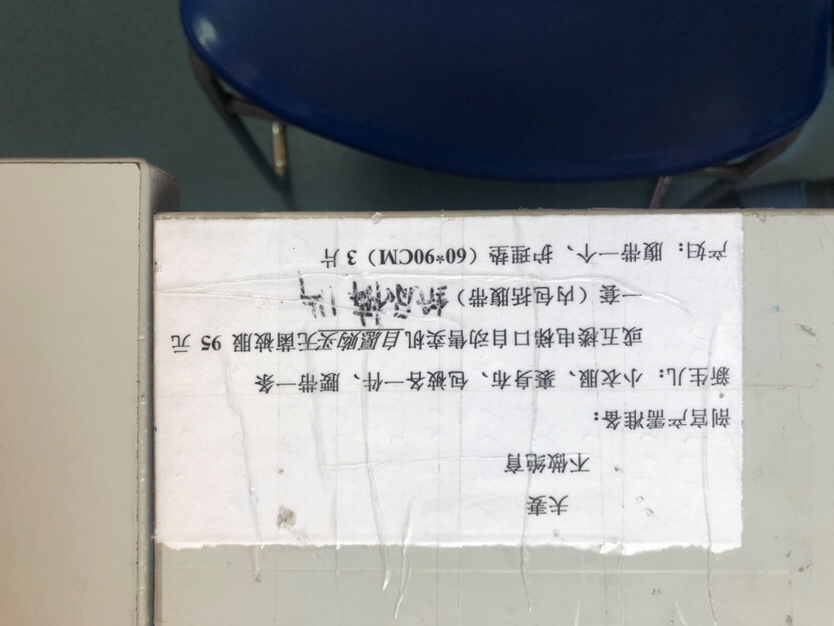 夫妻
不做绝育
剖宫产需准备：
新生儿：小衣服、裹身布、包被各一件、腰带一条
或五楼电梯口自动售卖机自愿购买无菌被服 95 元
一套（内包括腹带）
产妇：腹带一个、护理垫（60*90CM）3 片